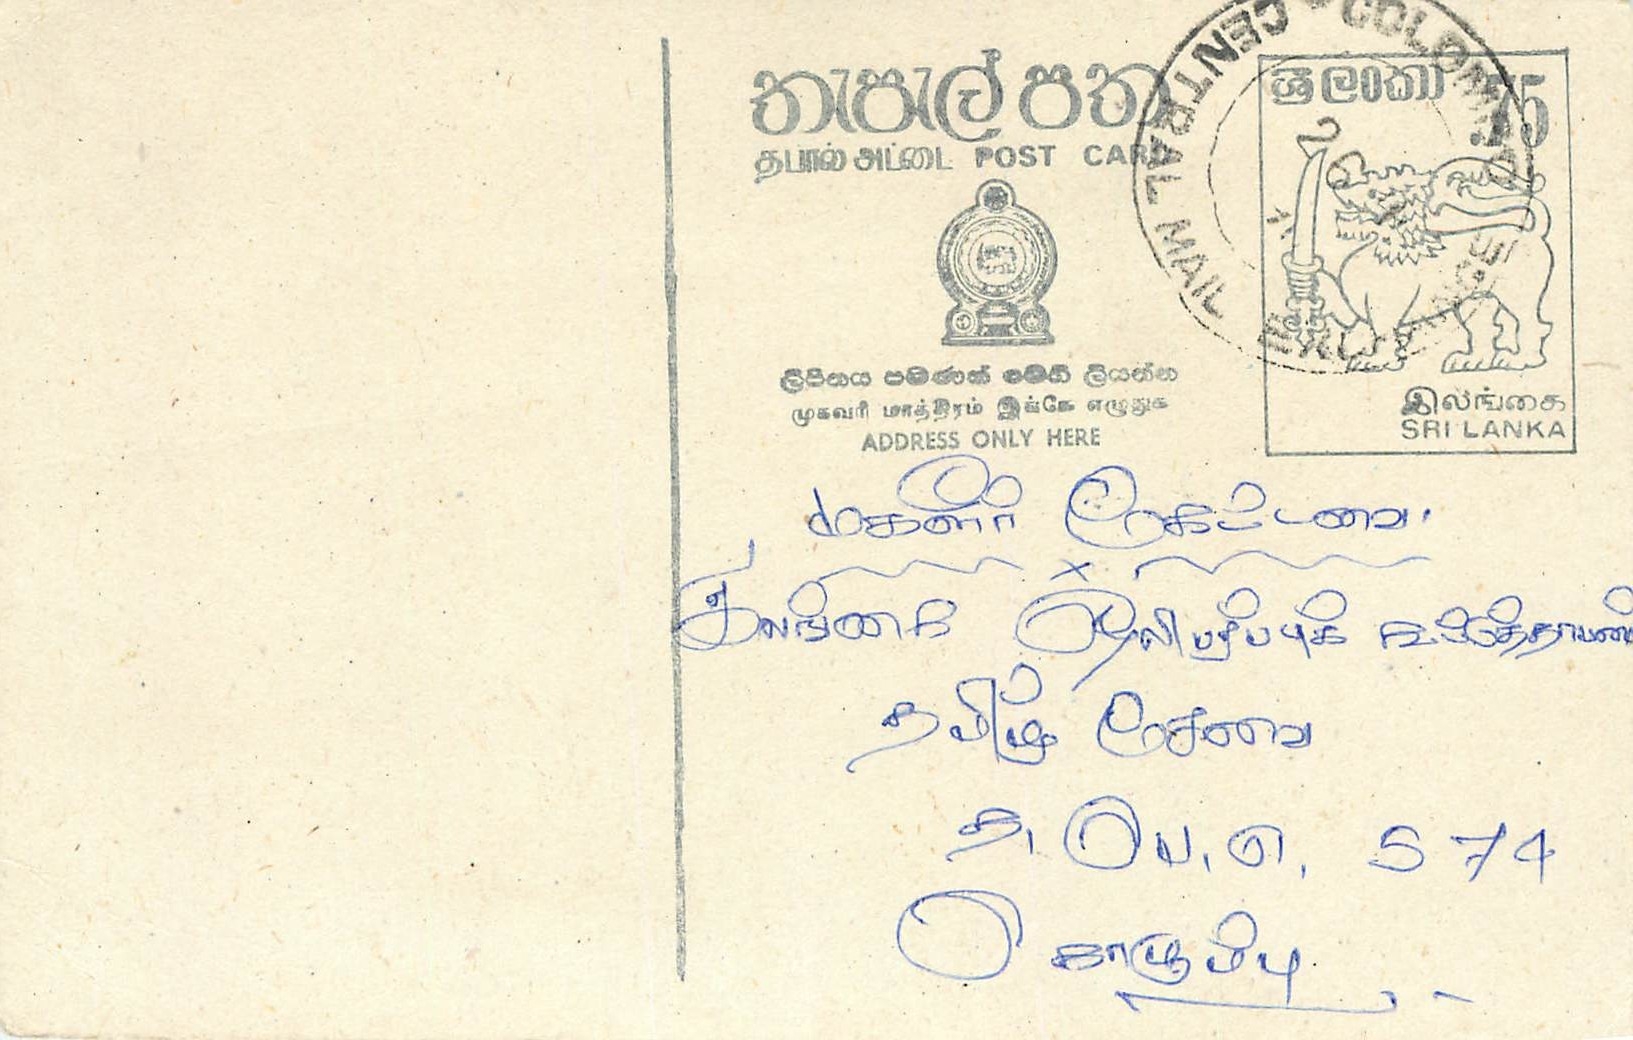 තැපැල් පත
தபால் அட்டை POST CARD
ශ්‍රී ලංකා 75
COLOMBO CENTRAL MAIL
ලිපිනය පමණක් මෙහි ලියන්න
முகவரி மாத்திரம் இங்கே எழுதுக
ADDRESS ONLY HERE
இலங்கை
SRI LANKA
மகளிர் கேட்டவை.
இலங்கை ஒலிபரப்புக்
தமிழ்ச் சேவை
த. பெ. எ. 574
கொழும்பு